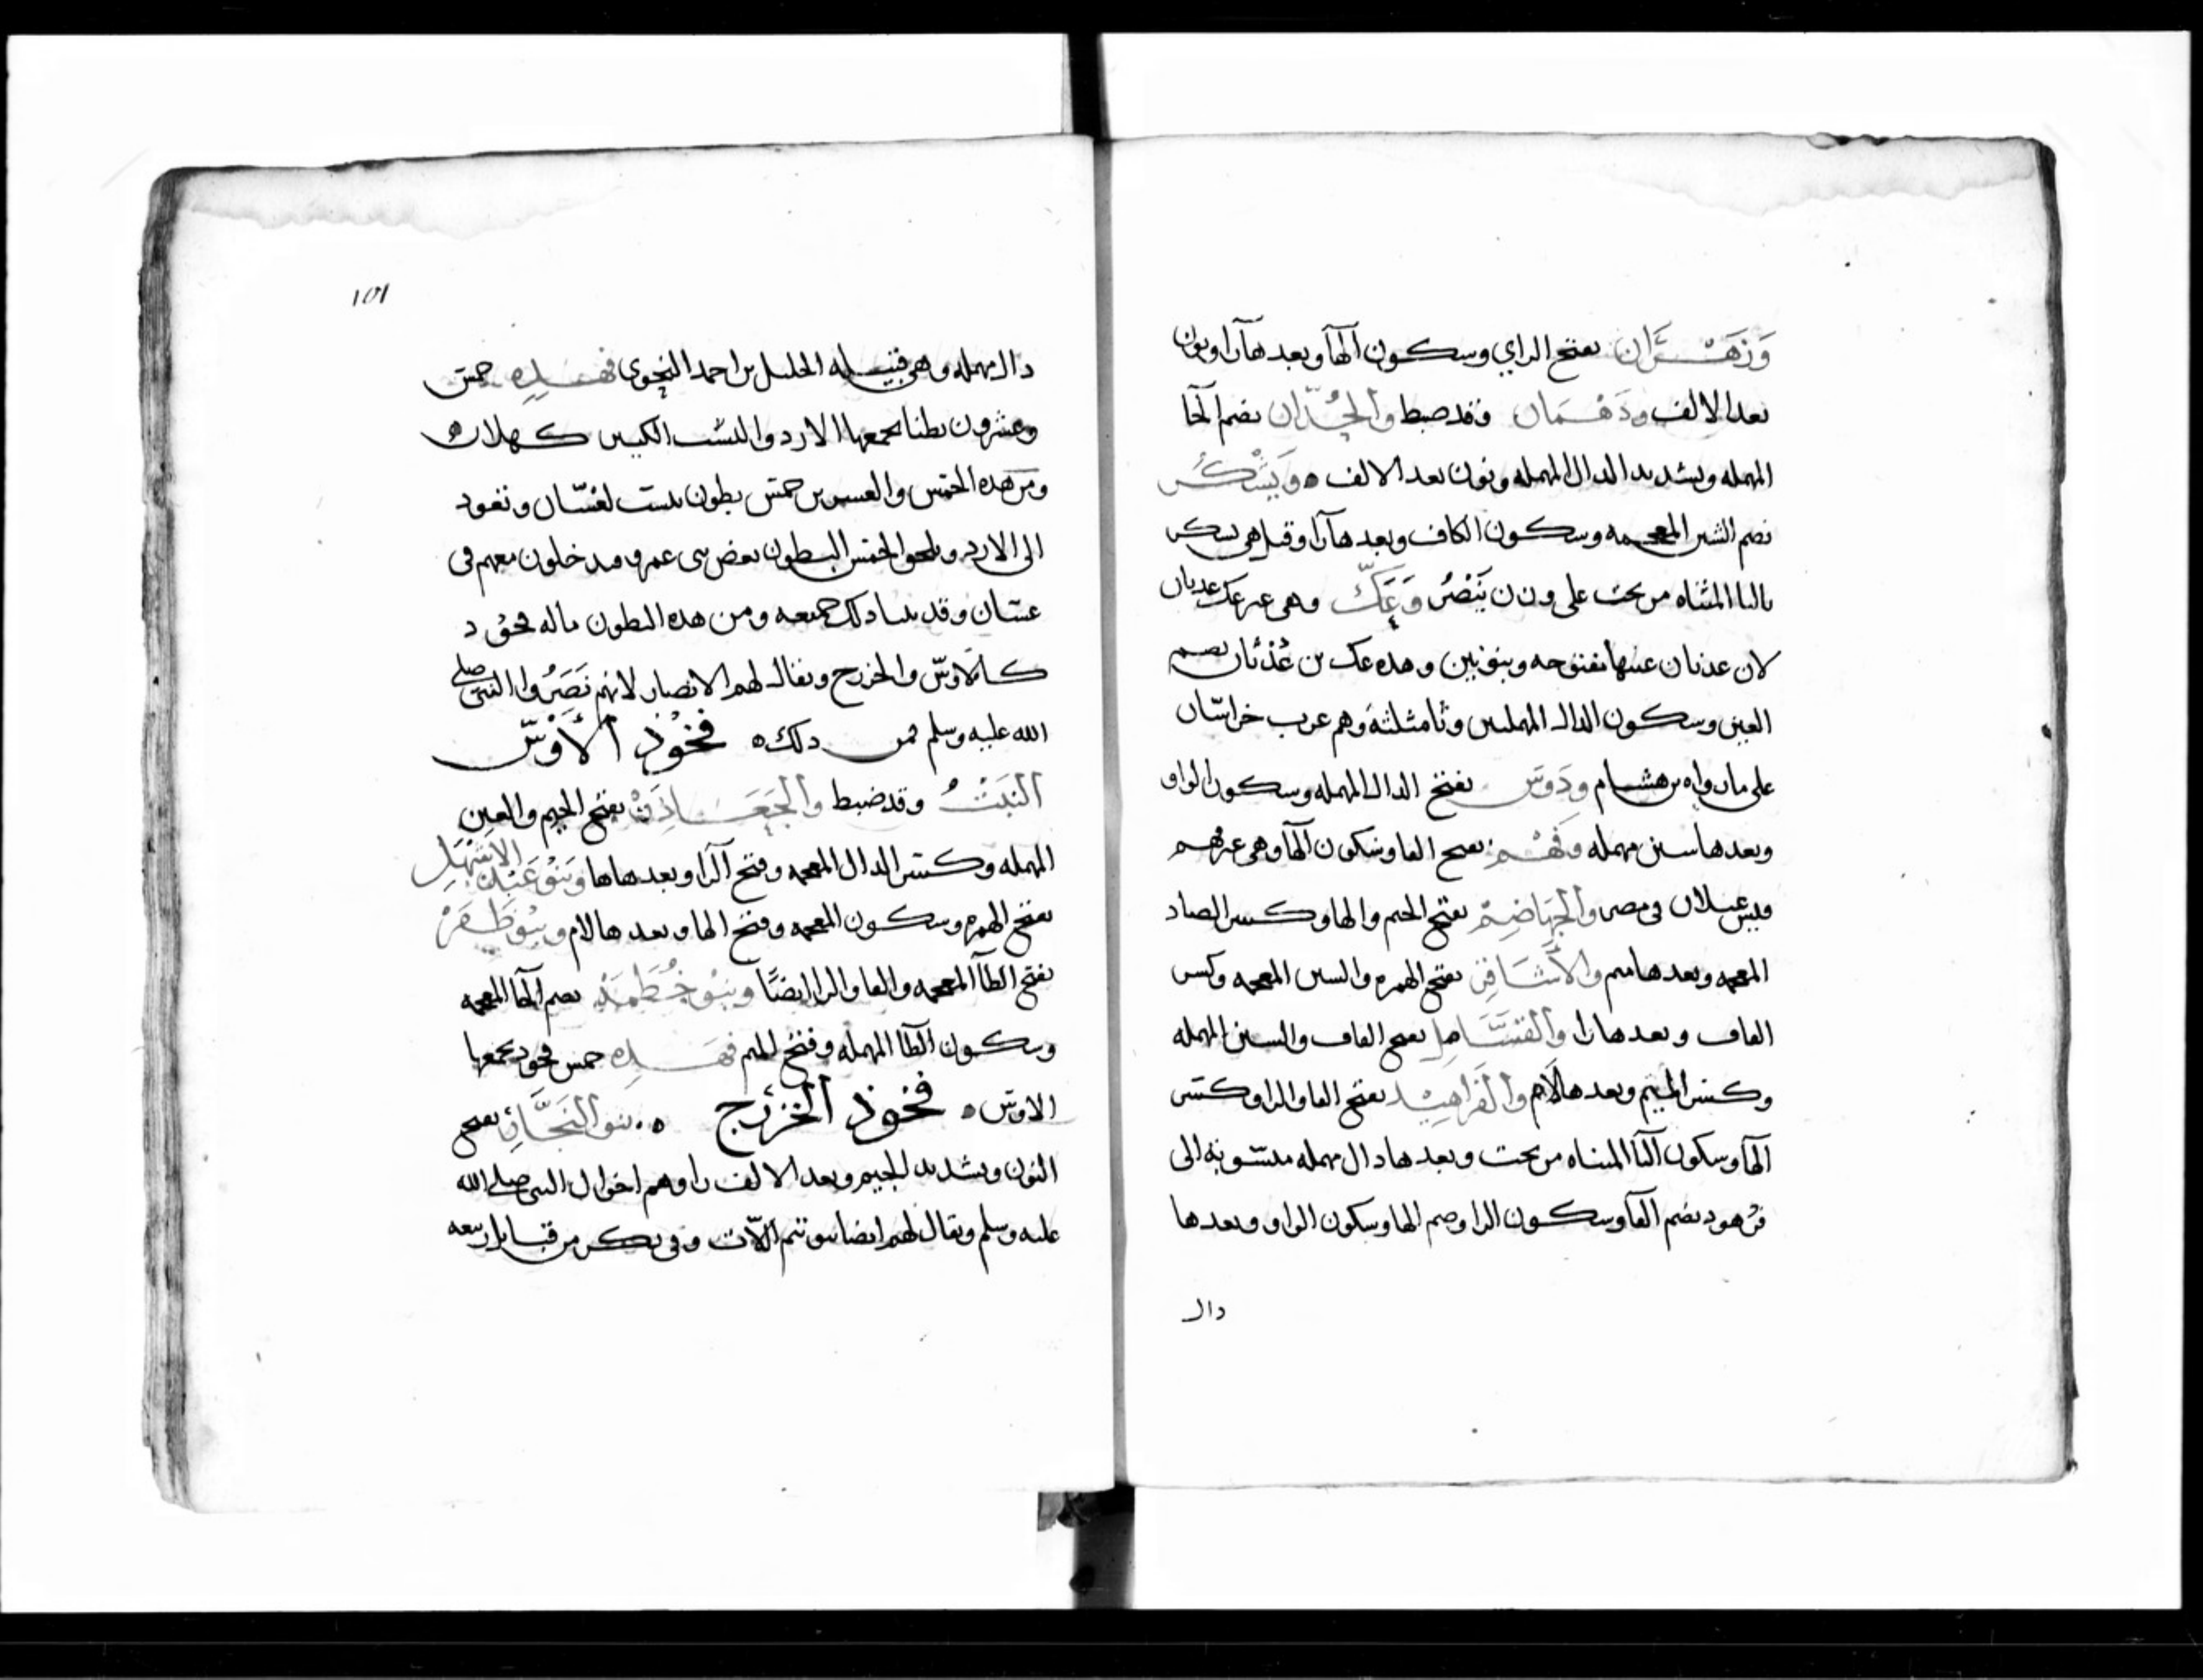 وَزَهْــرَان بفتح الزاي وسكون الهآ وبعدها رآ ونون
بعد الالف ودَهْـمَان وقد ضبط والحُدّان بضم الحآ
المهمله وتشديد الدال المهمله ونون بعد الالف ٥ وَيَشْكُر
بضم الشين المعجمه وسكون الكاف وبعدها رآ وقيل هي يشكر
باليا المثناه من تحت على وزن يَنْصُر وَعَكّ وهي غير عك عدنان
لان عدنان عينها مفتوحه وبنونين وهذه عك بن عُدْثان بضم
العين وسكون الدال المهملتين وثا مثلثة وهم عرب خراسان
على ما رواه بن هشام ودَوْس بفتح الدال المهمله وسكون الواو
وبعدها سين مهمله وفَهْـم بفتح الفا وسكون الهآ وهي غير فهم
قيس عيلان في مضر والجَهَاضِمْ بفتح الجيم والها وكسر الضاد
المعجمه وبعدها ميم والأَشَاقِر بفتح الهمزه والشين المعجمه وكسر
القاف وبعدها را والقسَامِل بفتح القاف والسين المهمله
وكسر الميم وبعدها لام والفَرَاهِيْـد بفتح الفا والرا وكسر
الهآ وسكون اليآ المثناه من تحت وبعدها دال مهمله منسوبة الى
فرهود بضم الفآ وسكون الرا وضم الها وسكون الواو وبعدها
دال
١٥١
دال مهمله وهي قبيـله الخليل بن احمد النحوي فهـذه خمس
وعشرون بطنا يجمعها الازد والنسب الكبير كهلان ٥
ومن هذه الخمس والعشرين خمس بطون نسبت لغسّان وتعود
الى الازد ويلحق الخمس البطون بعض بني عمرو فيدخلون معهم في
غسان وقد بينا ذلك جميعه ومن هذه البطون ماله فخوذ
كالاوس والخزرج ويقال لهم الانصار لانهم نَصَرُوا النبي صلى
الله عليه وسلم فمن ذلك ٥ فخُوْذ الأَوْس
النَبَتْ وقد ضبط والجَعَـاذِرَةْ بفتح الجيم والعين
المهمله وكسر الذال المعجمه وفتح الرآ وبعدها ها وَبَنُوْ عَبْد الاَشْهَلِ
بفتح الهمزه وسكون المعجمه وفتح الها وبعدها لام وبنُوْ ظَـفَرْ
بفتح الظآ المعجمه والفا والرا ايضًا وبنُو خُطَمَة بضم الخآ المعجمه
وسكون الطآ المهمله وفتح الميم فهَــذِه خمس فخوذ يجمعها
الاوس ٥ فخُوذ الخزرَج ٥ بنو النَجَّار بفتح
النون وتشديد الجيم وبعد الالف را وهم اخوال النبي صلى الله
عليه وسلم ويقال لهم ايضا بنو تيم اللّات وفي بكر من قبايل ربيعه